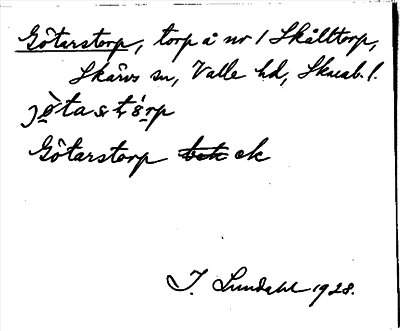 Götarstorp, torp å nr 1 Skålltorp,
Skärvs sn, Valle hd, Skarab. l.
jø̀tas̱tó̱rp
Götarstorp ~~bek~~ ek
I. Lundahl 1928.